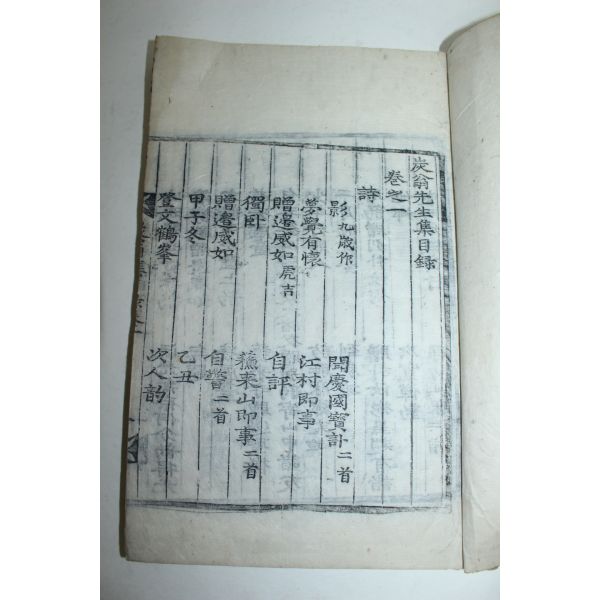 炭翁先生集目録
卷之一
詩
影 九歲作 聞慶國寶訃 二首
夢覺有懷 江村即事
贈邊威如 虎吉 自評
獨卧 蘇來山即事 二首
贈邊威如 自警 二首
甲子冬 乙丑
登文鶴峯 次人韵